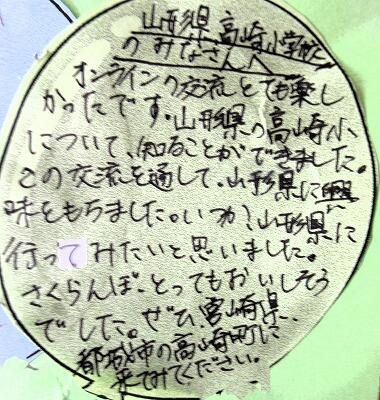 山形県高崎小学校
のみなさんへ
オンラインの交流とても楽し
かったです。山形県の高崎小
について、知ることができました。
この交流を通して、山形県に興
味をもちました。いつか?山形県に
行ってみたいと思いました。
さくらんぼ、とってもおいしそう
でした。ぜひ、宮崎県、
都城市の高崎町に
来てみてください。